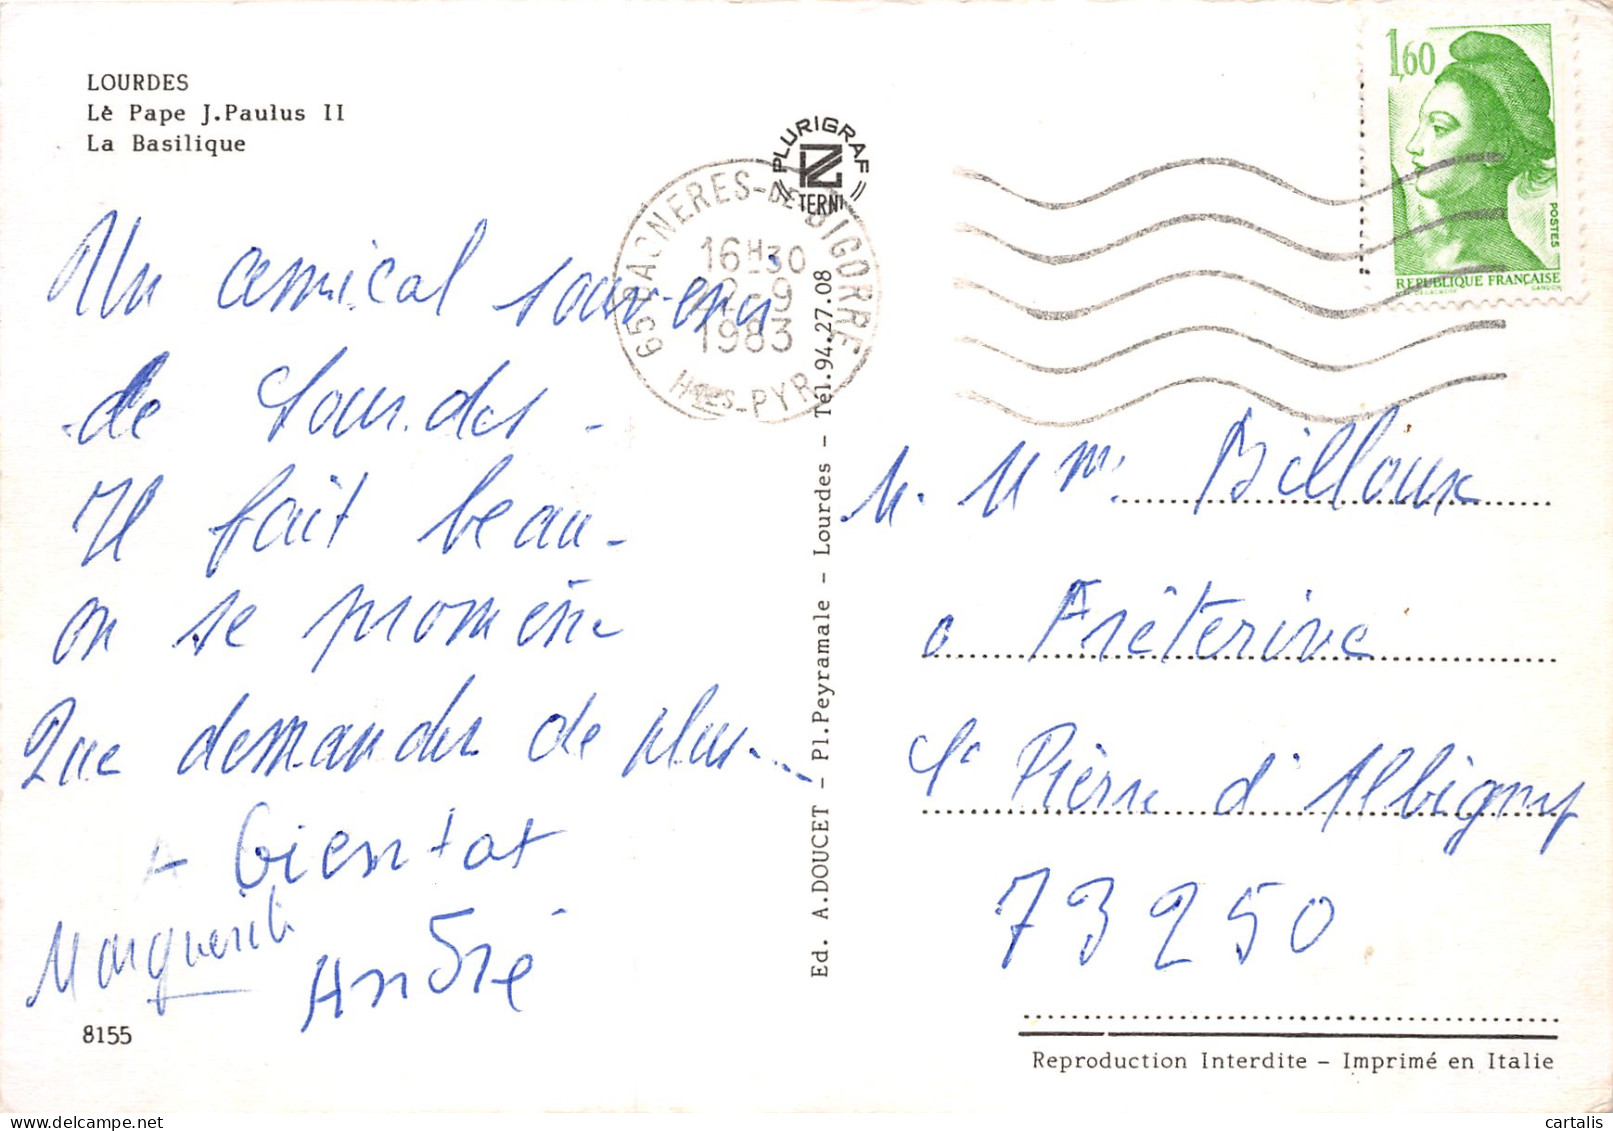 LOURDES
Lè Pape J.Paulus II
La Basilique
Un amical souvenir
de Lourdes -
Il fait beau -
on se promène
Que demander de plus...
A bientot
Marguerite
André
8155
PLURIGRAF
TERNI
65 BAGNERES-DE-BIGORRE
16H30
2-9
1983
HTES-PYR
Ed. A.DOUCET - Pl.Peyramale - Lourdes - Tél.94.27.08
1,60
POSTES
REPUBLIQUE FRANÇAISE
GANDON
M. Mme Billoux
a Frêterive
St Pièrre d'Albigny
73250
Reproduction Interdite - Imprimé en Italie
cartalis